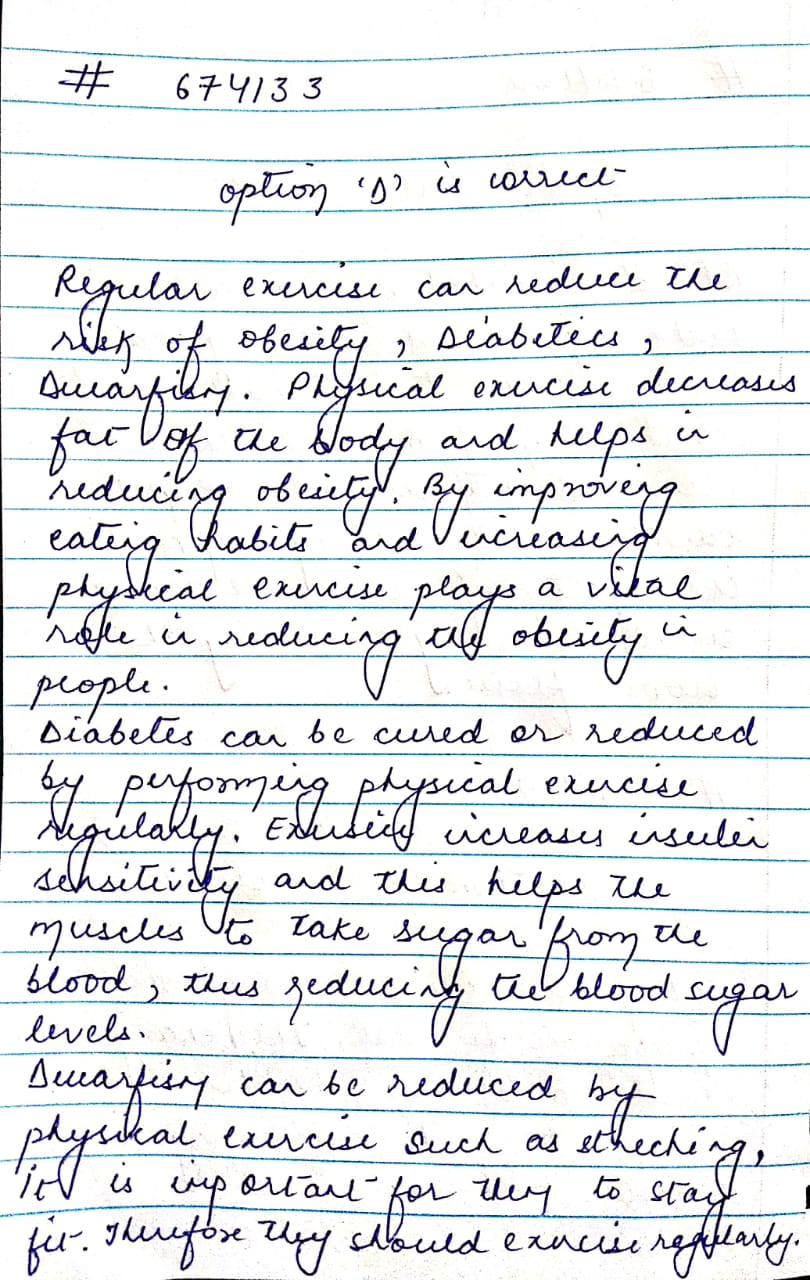 # 674133
option 'D' is correct
Regular exercise can reduce the
risk of obesity, Diabetics,
Dwarfism. Physical exercise decreases
fat of the body and helps in
reducing obesity. By improving
eating habits and increasing
physical exercise plays a vital
role in reducing the obesity in
people.
Diabetes can be cured or reduced
by performing physical exercise
regularly. increases insulin
sensitivity and this helps the
muscles to take sugar from the
blood, thus reducing the blood sugar
levels.
Dwarfism can be reduced by
physical exercise such as streching,
it is important for them to stay
fit. Therefore they should exercise regularly.